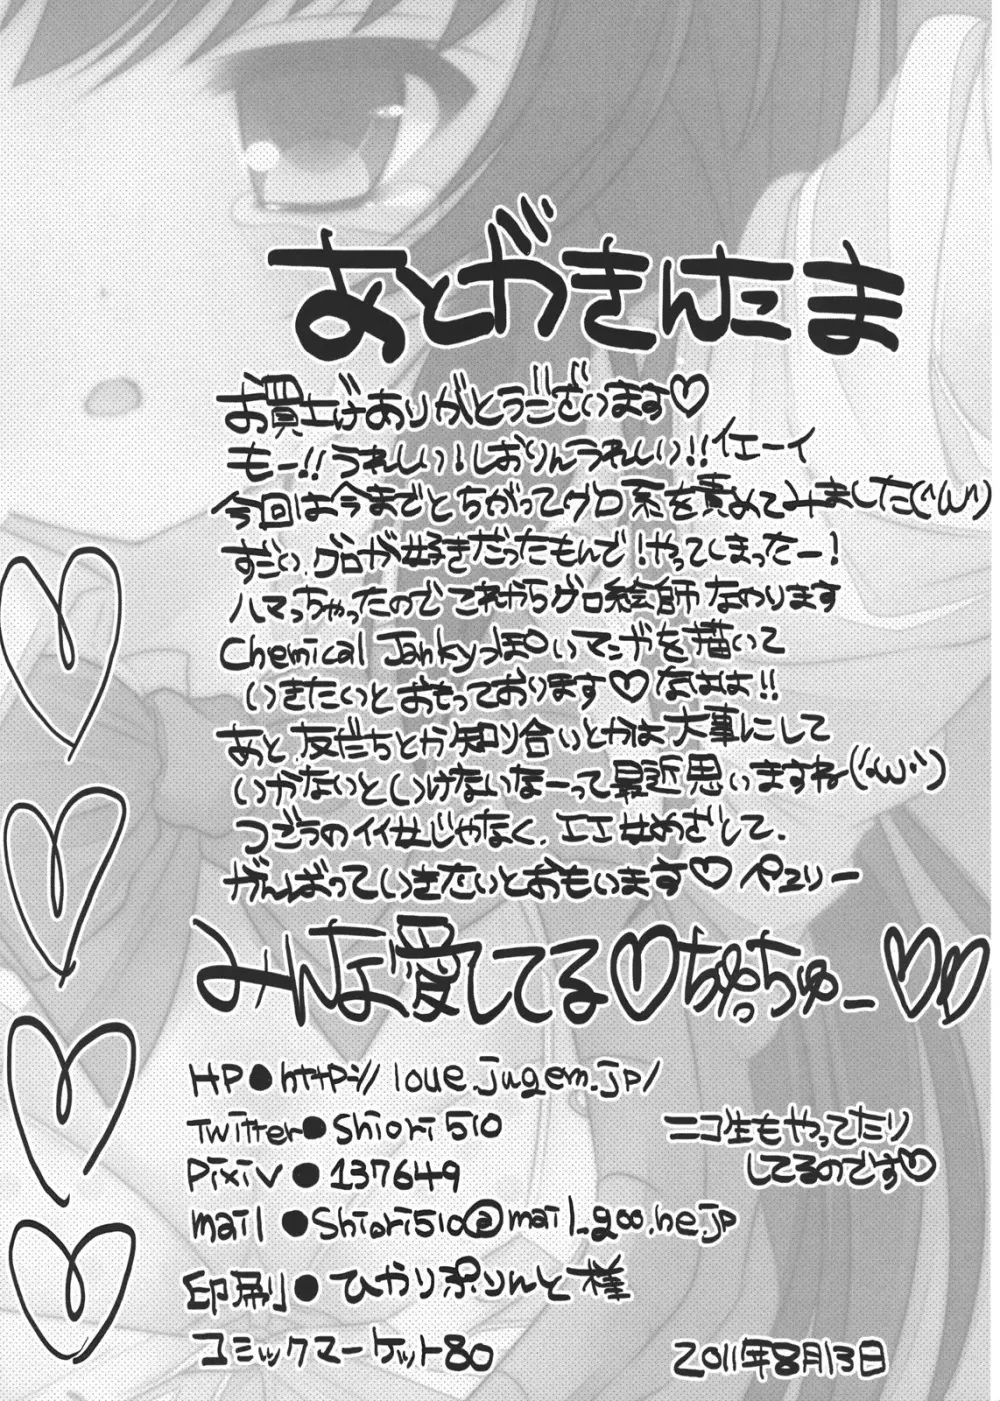 あとがきんたま
お買上げありがとうございます♡
もー!!うれしい!しおりんうれしい!!イエーイ
今回は今までとちがってグロ系を責めてみました(`・ω・´)
すごい、グロが好きだったもんで!やってしまったー!
ハマっちゃったのでこれからグロ絵師なのります
Chemical Jankyっぽいマンガを描いて
いきたいとおもっております♡なはは!!
あと、友だちとか知り合いとかは大事にして
いかないといけないなーって最近思いますね(`・ω・´)
つごうのイイ女じゃなく、エエ女めざして、
がんばっていきたいとおもいます♡ペロリー
みんな愛してる♡ちゅっちゅー♡♡
HP●http://loue.jugem.jp/
Twitter●Shiori510
ニコ生もやってたり
してるのです♡
Pixiv●137649
mail●Shiori510@mail.goo.ne.jp
印刷●ひかりぷりんと様
コミックマーケット80
2011年8月13日